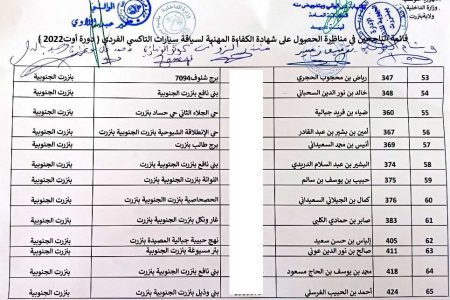 الداخلية
ولاية بنزرت
الوالي
قائمة الناجحين في مناظرة الحصول على شهادة الكفاءة المهنية لسياقة سيارات التاكسي الفردي ( دورة أوت2022 )
53 347 رياض بن محجوب الحجري برج شلوف7094 بنزرت الجنوبية
54 348 خالد بن نور الدين السحباني بني نافع بنزرت بنزرت الجنوبية
55 360 ضياء بن فريد جبالية حي الجلاء الثاني حي حساد بنزرت بنزرت الجنوبية
56 367 أمين بن بشير بن عبد القادر حي الإنطلاقة الشيوحية بنزرت الجنوبية بنزرت بنزرت الجنوبية
57 369 أنيس بن محمد السعيداني برج طالب بنزرت بنزرت الجنوبية
58 374 البشير بن عبد السلام الدريدي بني نافع بنزرت بنزرت الجنوبية
59 375 حبيب بن يوسف بن سالم اللواتة بنزرت الجنوبية بنزرت بنزرت الجنوبية
60 376 كمال بن الجيلاني السعيداني الحصحاصية بنزرت الجنوبية بنزرت بنزرت الجنوبية
61 383 صابر بن حمادي الكلبي غار ونكل بنزرت الجنوبية بنزرت الجنوبية
62 405 إلياس بن حسن سعيد نهج حبيبة جبالية المصيدة بنزرت بنزرت الجنوبية
63 411 صالح بن نور الدين عوني بنزرت بنزرت الجنوبية
64 418 محمد بن يوسف بن الحاج مسعود بني نافع بنزرت الجنوبية بنزرت بنزرت الجنوبية
65 424 أحمد بن الحبيب الغرسلي بنزرت الجنوبية بنزرت بنزرت الجنوبية